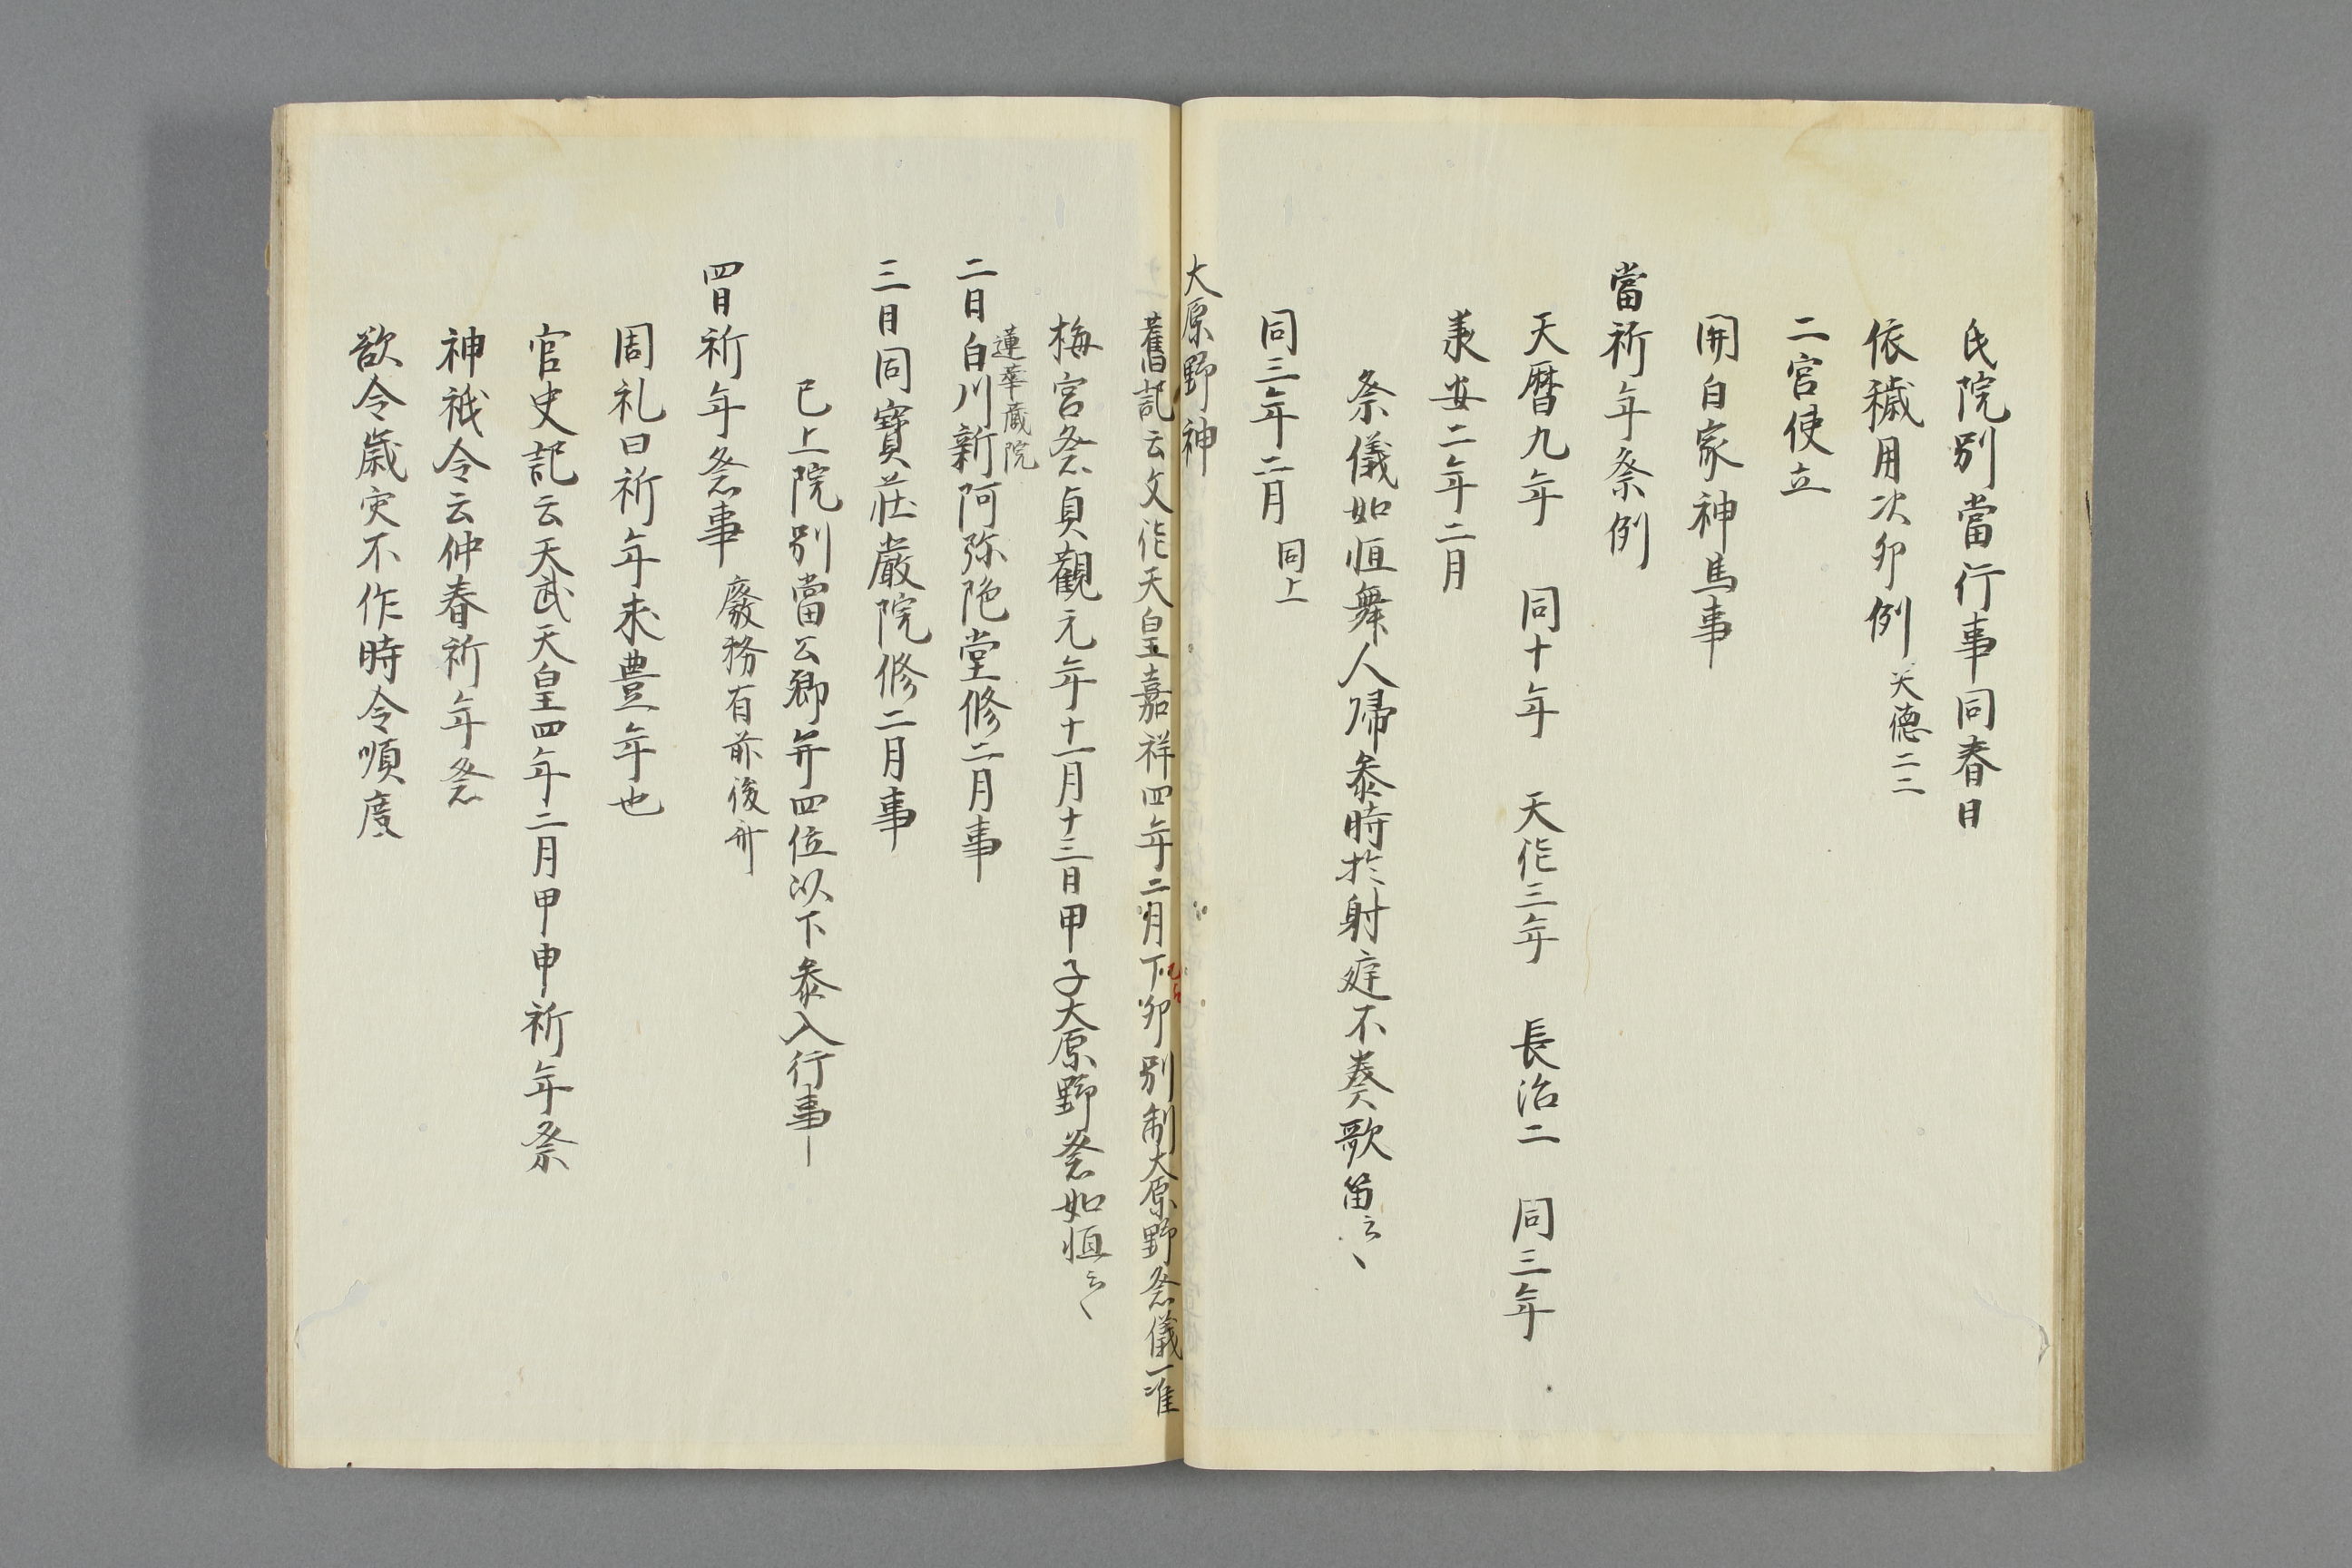 氏院別當行事同春日
依穢用次卯例 天德二二
二宮使立
開白家神馬事
當祈年祭例
天暦九年 同十年 天佐三年 長治二 同三年
承安二年二月
祭儀如恒舞人帰参時於射庭不奏歌笛云〻
同三年二月 同上
大原野神
舊記云文佐天皇嘉祥四年二月下卯別制大原野祭儀一准
梅宮祭貞觀元年十一月十三日甲子大原野祭如恒云〻
蓮華蔵院
二日白川新阿弥陁堂修二月事
三日同寶荘嚴院修二月事
已上院別當公卿并四位以下参入行事
四日祈年祭事 廢務有前後斎
周礼曰祈年求豊年也
官史記云天武天皇四年二月甲申祈年祭
神祇令云仲春祈年祭
欲令歳灾不作時令順度